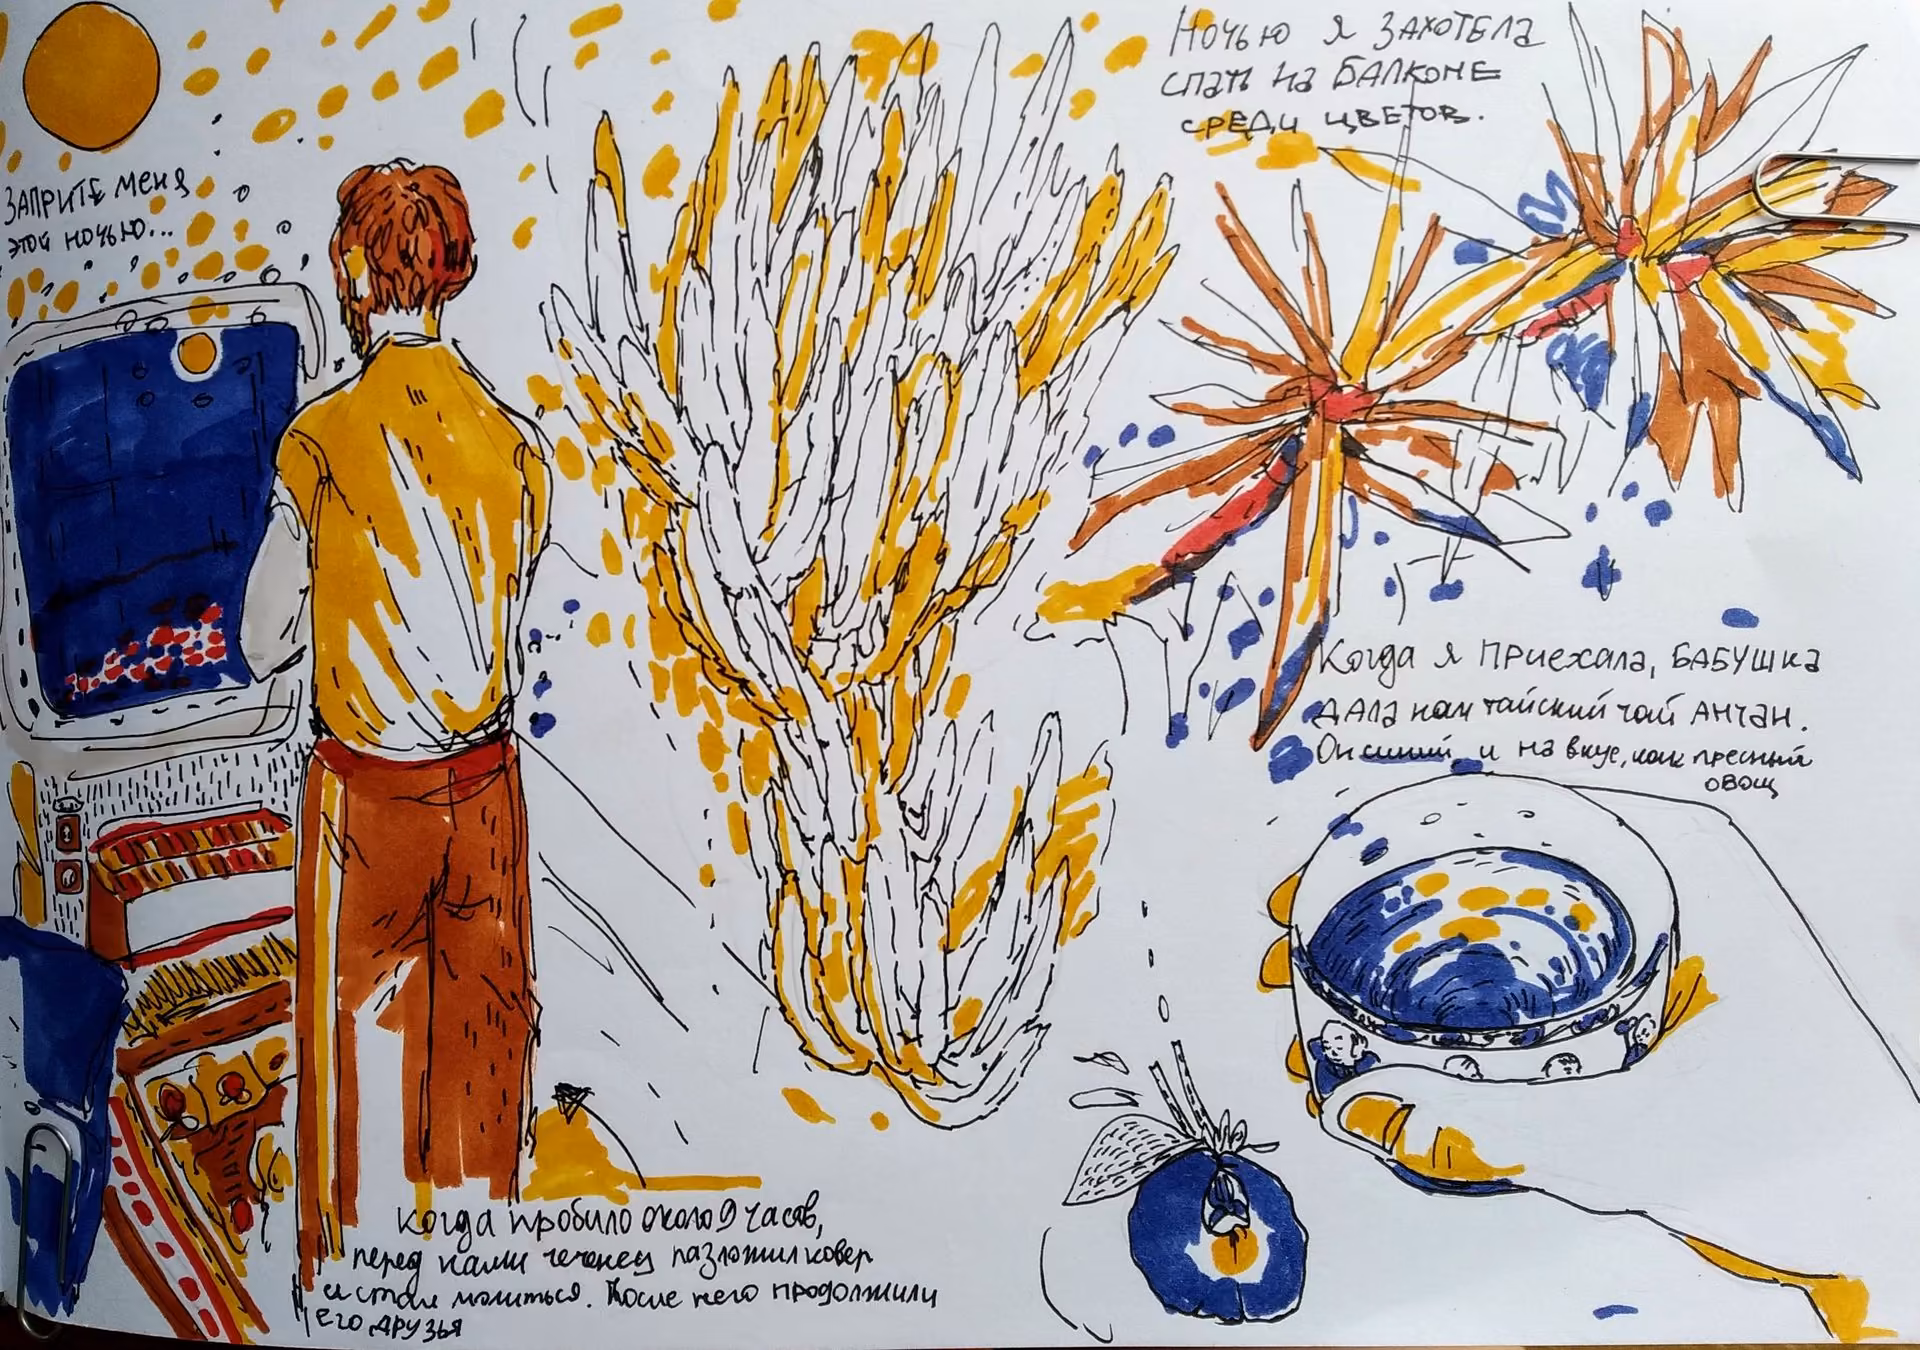 Ночью я захотела
спать на балконе
среди цветов.
Заприте меня
этой ночью...
Когда я приехала, бабушка
дала нам тайский чай Анчан.
Он синий и на вкус, как пресный
овощ
Когда пробило около 9 часов,
перед нами чеченец разложил ковер
и стал молиться. После него продолжили
его друзья